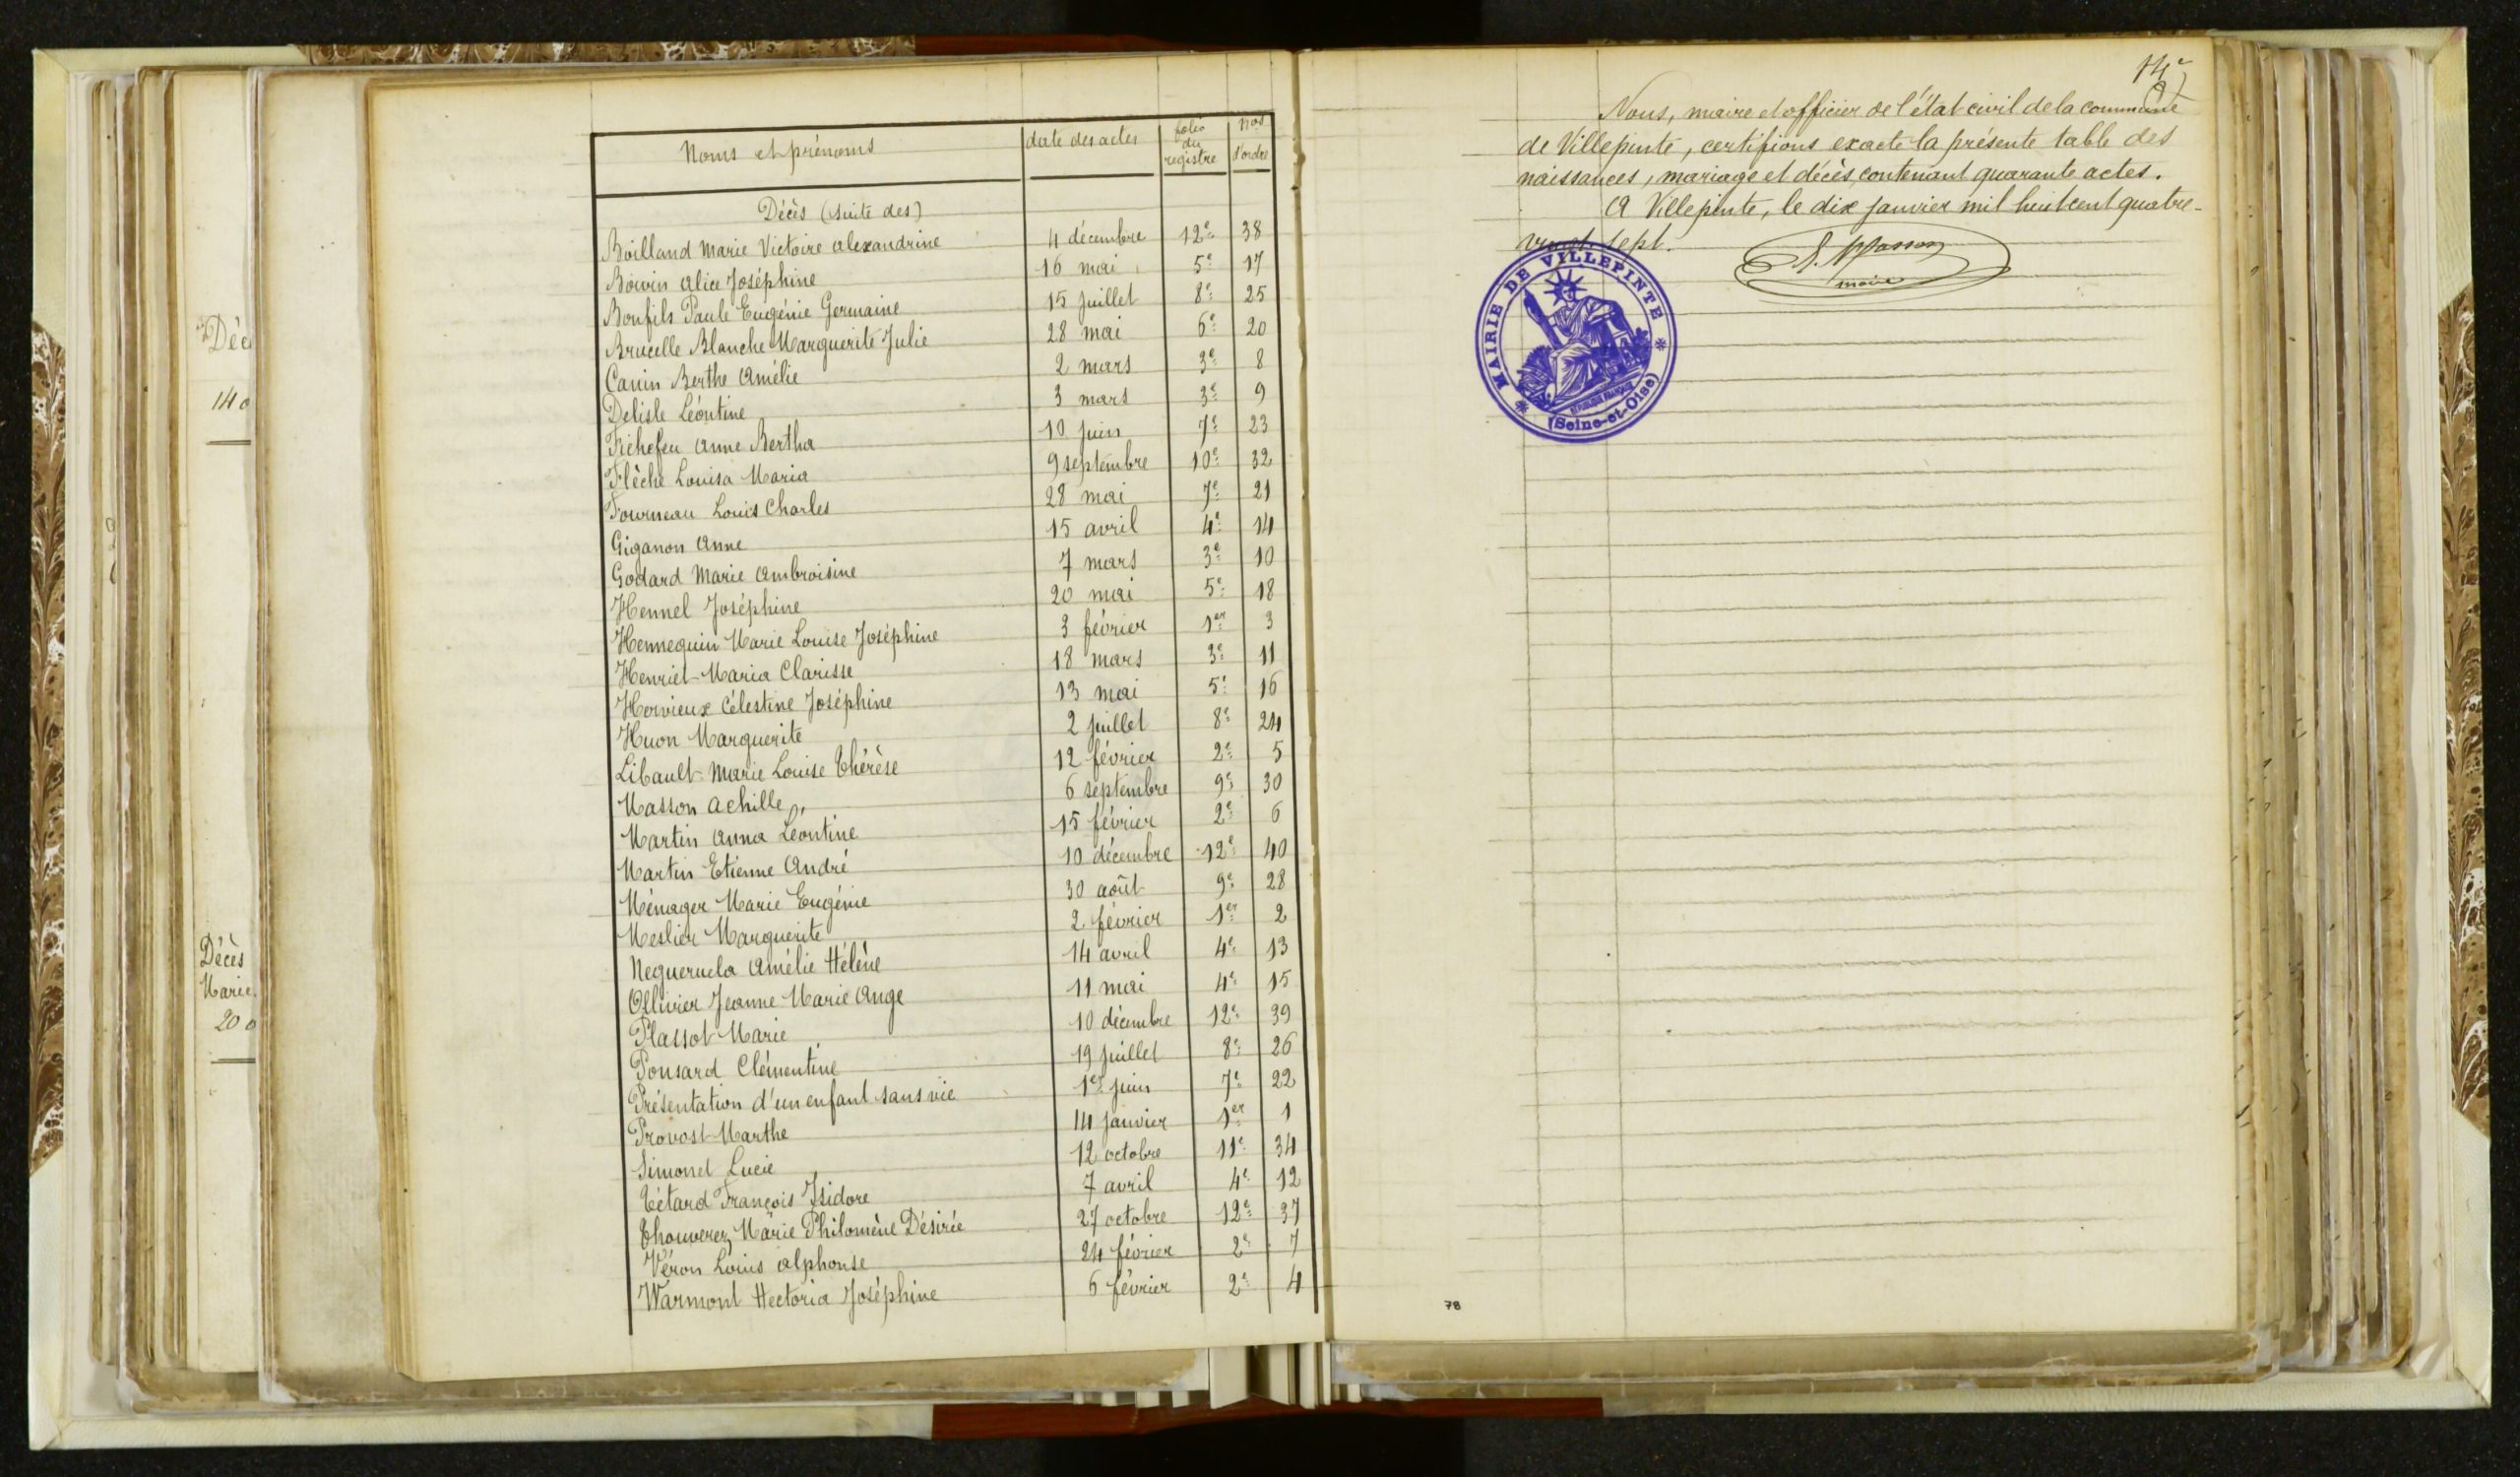 Déc
140
Décès
Marie
20 0
Noms et prénoms | date des actes | folio du registre | nos d'ordre
Décès (suite des)
Boilland Marie Victoire Alexandrine | 4 décembre | 12e | 38
Boivin Alice Joséphine | 16 mai | 5e | 17
Bonfils Paule Eugénie Germaine | 15 juillet | 8e | 25
Brucelle Blanche Marguerite Julie | 28 mai | 6e | 20
Canin Berthe Amélie | 2 mars | 3e | 8
Delisle Léontine | 3 mars | 3e | 9
Fichefeu Anne Bertha | 10 juin | 7e | 23
Flèche Louisa Maria | 9 septembre | 10e | 32
Fourneau Louis Charles | 28 mai | 7e | 21
Giganon Anne | 15 avril | 4e | 14
Godard Marie Ambroisine | 7 mars | 3e | 10
Hennel Joséphine | 20 mai | 5e | 18
Hennequin Marie Louise Joséphine | 3 février | 1er | 3
Henriet Maria Clarisse | 18 mars | 3e | 11
Hervieux Célestine Joséphine | 13 mai | 5e | 16
Huon Marguerite | 2 juillet | 8e | 24
Libault Marie Louise Thérèse | 12 février | 2e | 5
Masson Achille | 6 septembre | 9e | 30
Martin Anna Léontine | 15 février | 2e | 6
Martin Etienne André | 10 décembre | 12e | 40
Ménager Marie Eugénie | 30 août | 9e | 28
Meslier Marguerite | 2 février | 1er | 2
Negueruela Amélie Hélène | 14 avril | 4e | 13
Ollivier Jeanne Marie Ange | 11 mai | 4e | 15
Plassot Marie | 10 décembre | 12e | 39
Ponsard Clémentine | 19 juillet | 8e | 26
Présentation d'un enfant sans vie | 1er juin | 7e | 22
Provost Marthe | 14 janvier | 1er | 1
Simonet Lucie | 12 octobre | 11e | 34
Tétard François Isidore | 7 avril | 4e | 12
Thouverez Marie Philomène Désirée | 27 octobre | 12e | 37
Véron Louis Alphonse | 24 février | 2e | 7
Warmont Hectoria Joséphine | 6 février | 2e | 4
14e
Nous, maire et officier de l'état civil de la commune
de Villepinte, certifions exacte la présente table des
naissances, mariage et décès, contenant quarante actes.
A Villepinte, le dix janvier mil huit cent quatre-
vingt sept.
Masson
maire
MAIRIE DE VILLEPINTE
RÉPUBLIQUE FRANÇAISE
(Seine-et-Oise)
78